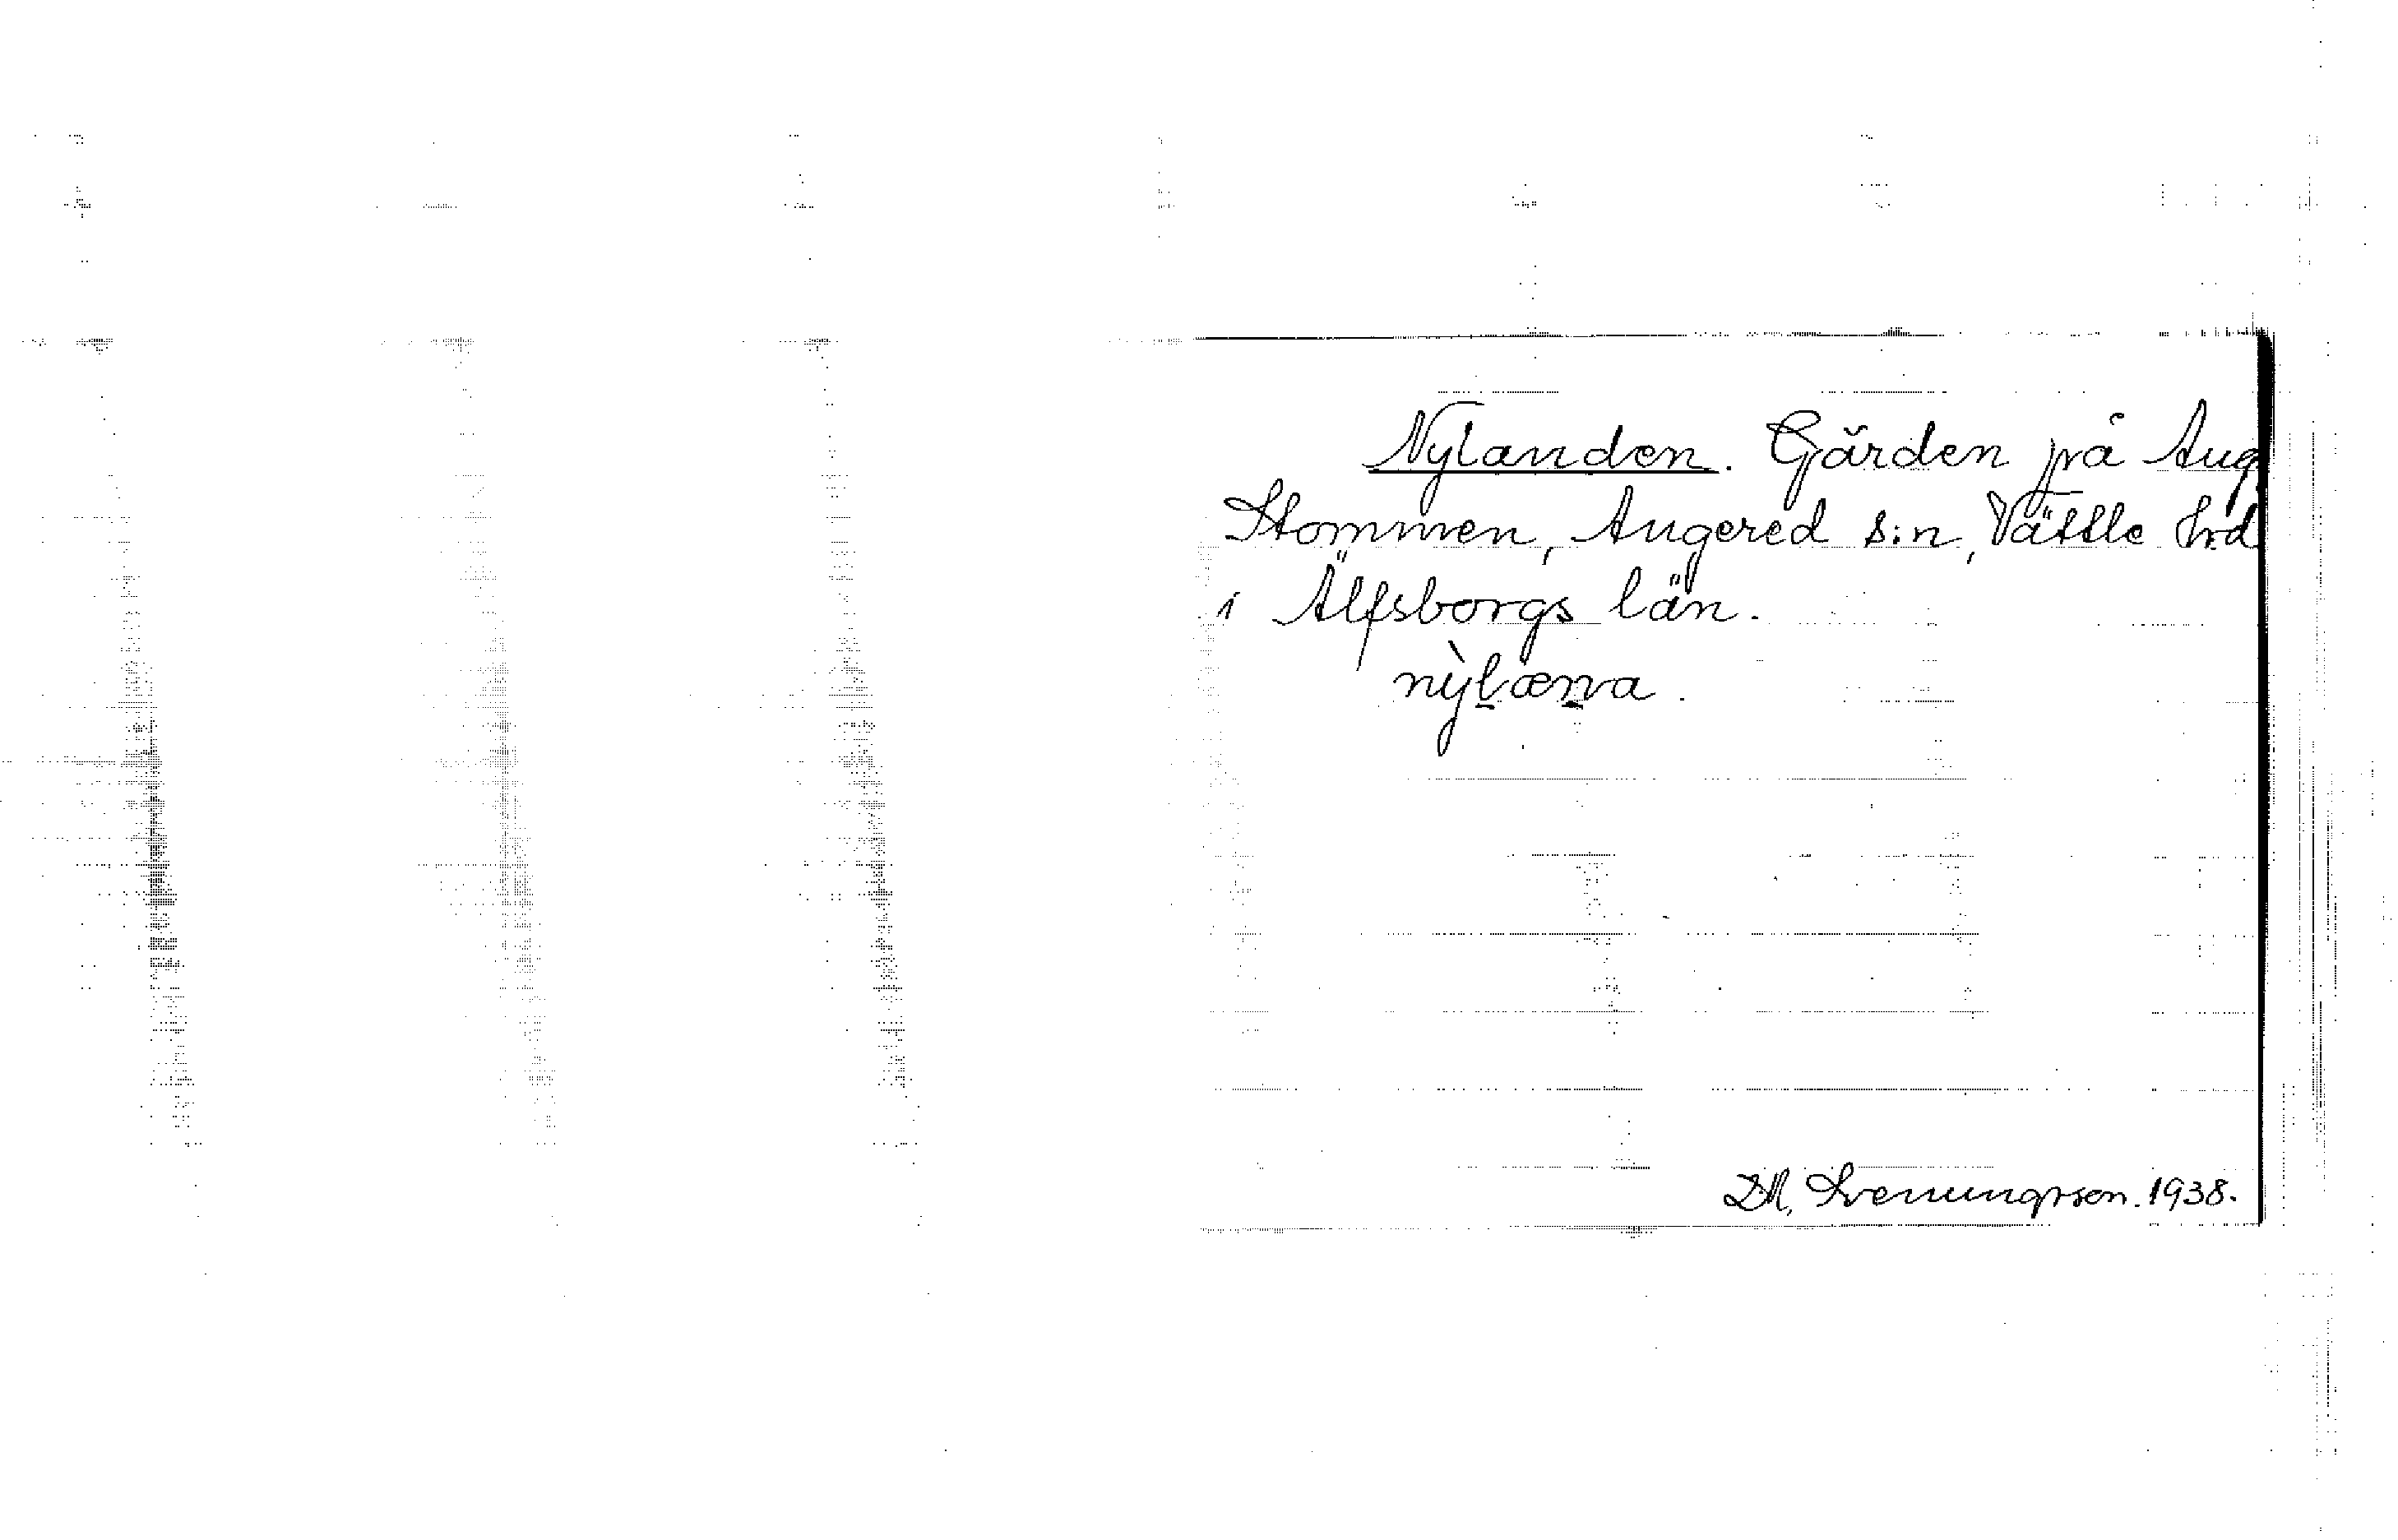 Nylanden. Gärden på Aug
Stommen, Augered s:n, Vättle hrd
i Älfsborgs län.
nỳlæna.
DM, Svenungsson. 1938.